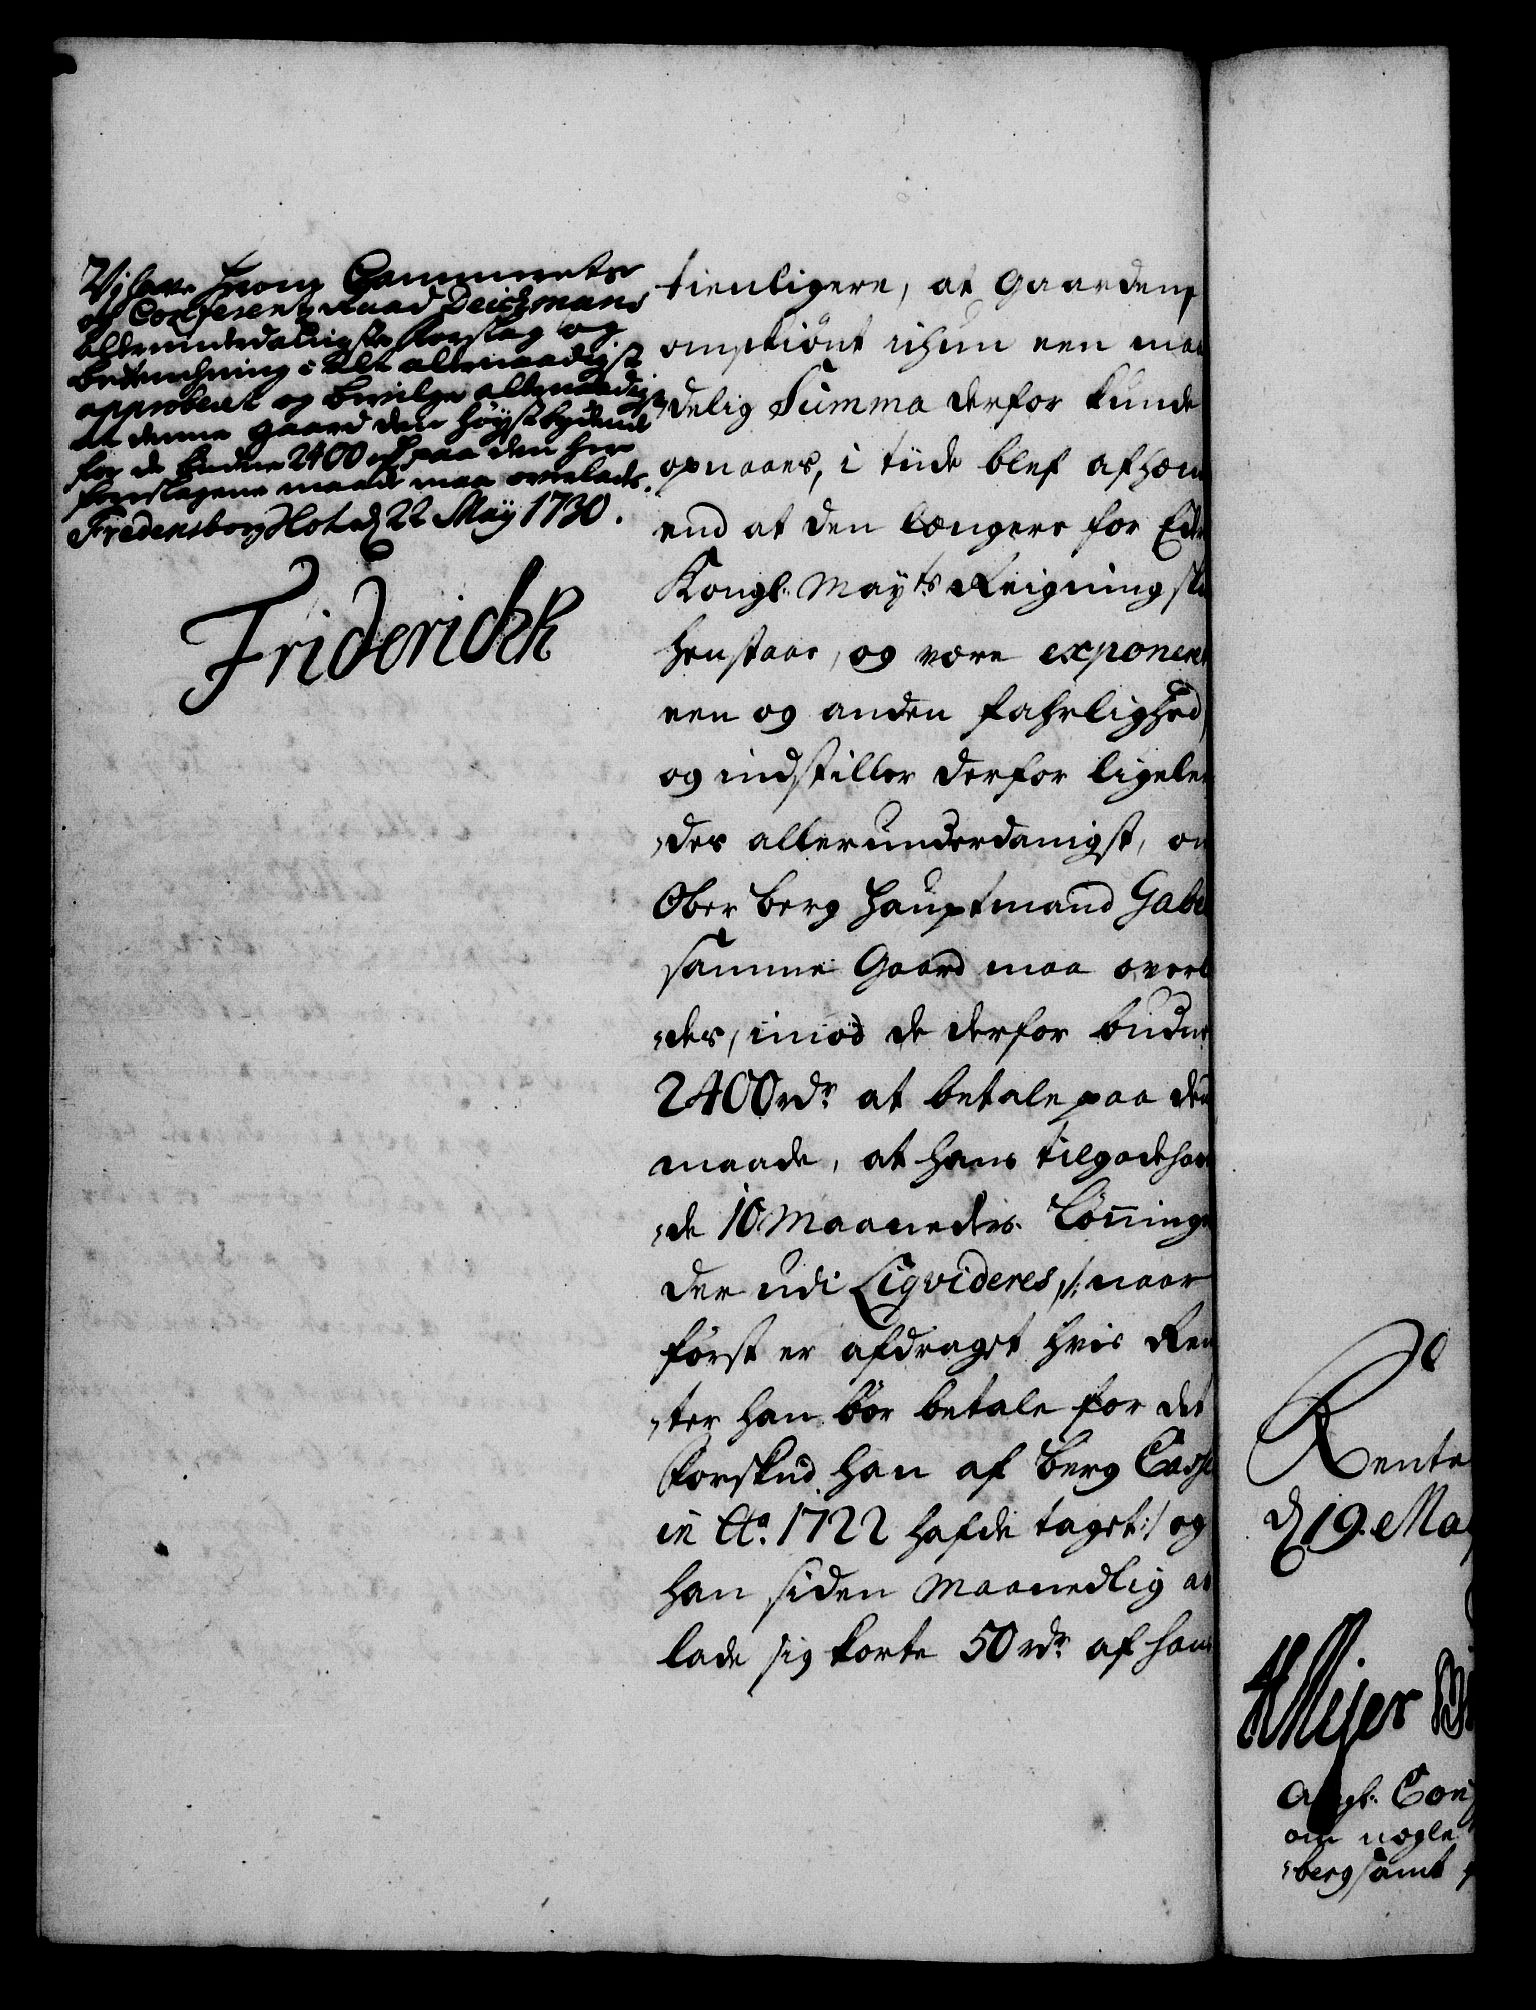 Vi have hvorj Cammerets
og Conferentz Raad Deichmans
allerunderdanigste forslag og
betænchning i alt allernaadigst
approberet og bevilge allernaadigst
at denne gaard den høystbydende
for de budne 2400 rd paa den her
foreslagene maade maa overlades.
Fredensborg Slot d 22 Maÿ 1730.
Friderich R
tienligere, at Gaarden,
omskiønt ichun een maa
delig Summa derfor kunde
opnaaes, i tiide blef afhæn
end at den længere for Eders
Kongl: Mayts Reigning skal
henstaae, og være exponeret
een og anden fahrlighed,
og indstiller derfor ligele
des allerunderdanigst, om
Ober Berg Hauptmand Gabel
samme Gaard maa overla
des, imod de derfor budne
2400 rdr at betale paa den
maade, at hans tilgodehaven
de 10 Maaneders Lønning
der udi Liqvideres /: naar
først er afdraget hvis Ren
ter han bør betale for det
forskud han af Berg Casse
in Ao 1722 hafde taget :/ og
han siden Maanedlig at
lade sig korte 50 rdr af hans
Rente
d 19 Ma
H Mejer
Angl: Con
om nogle
berg samt